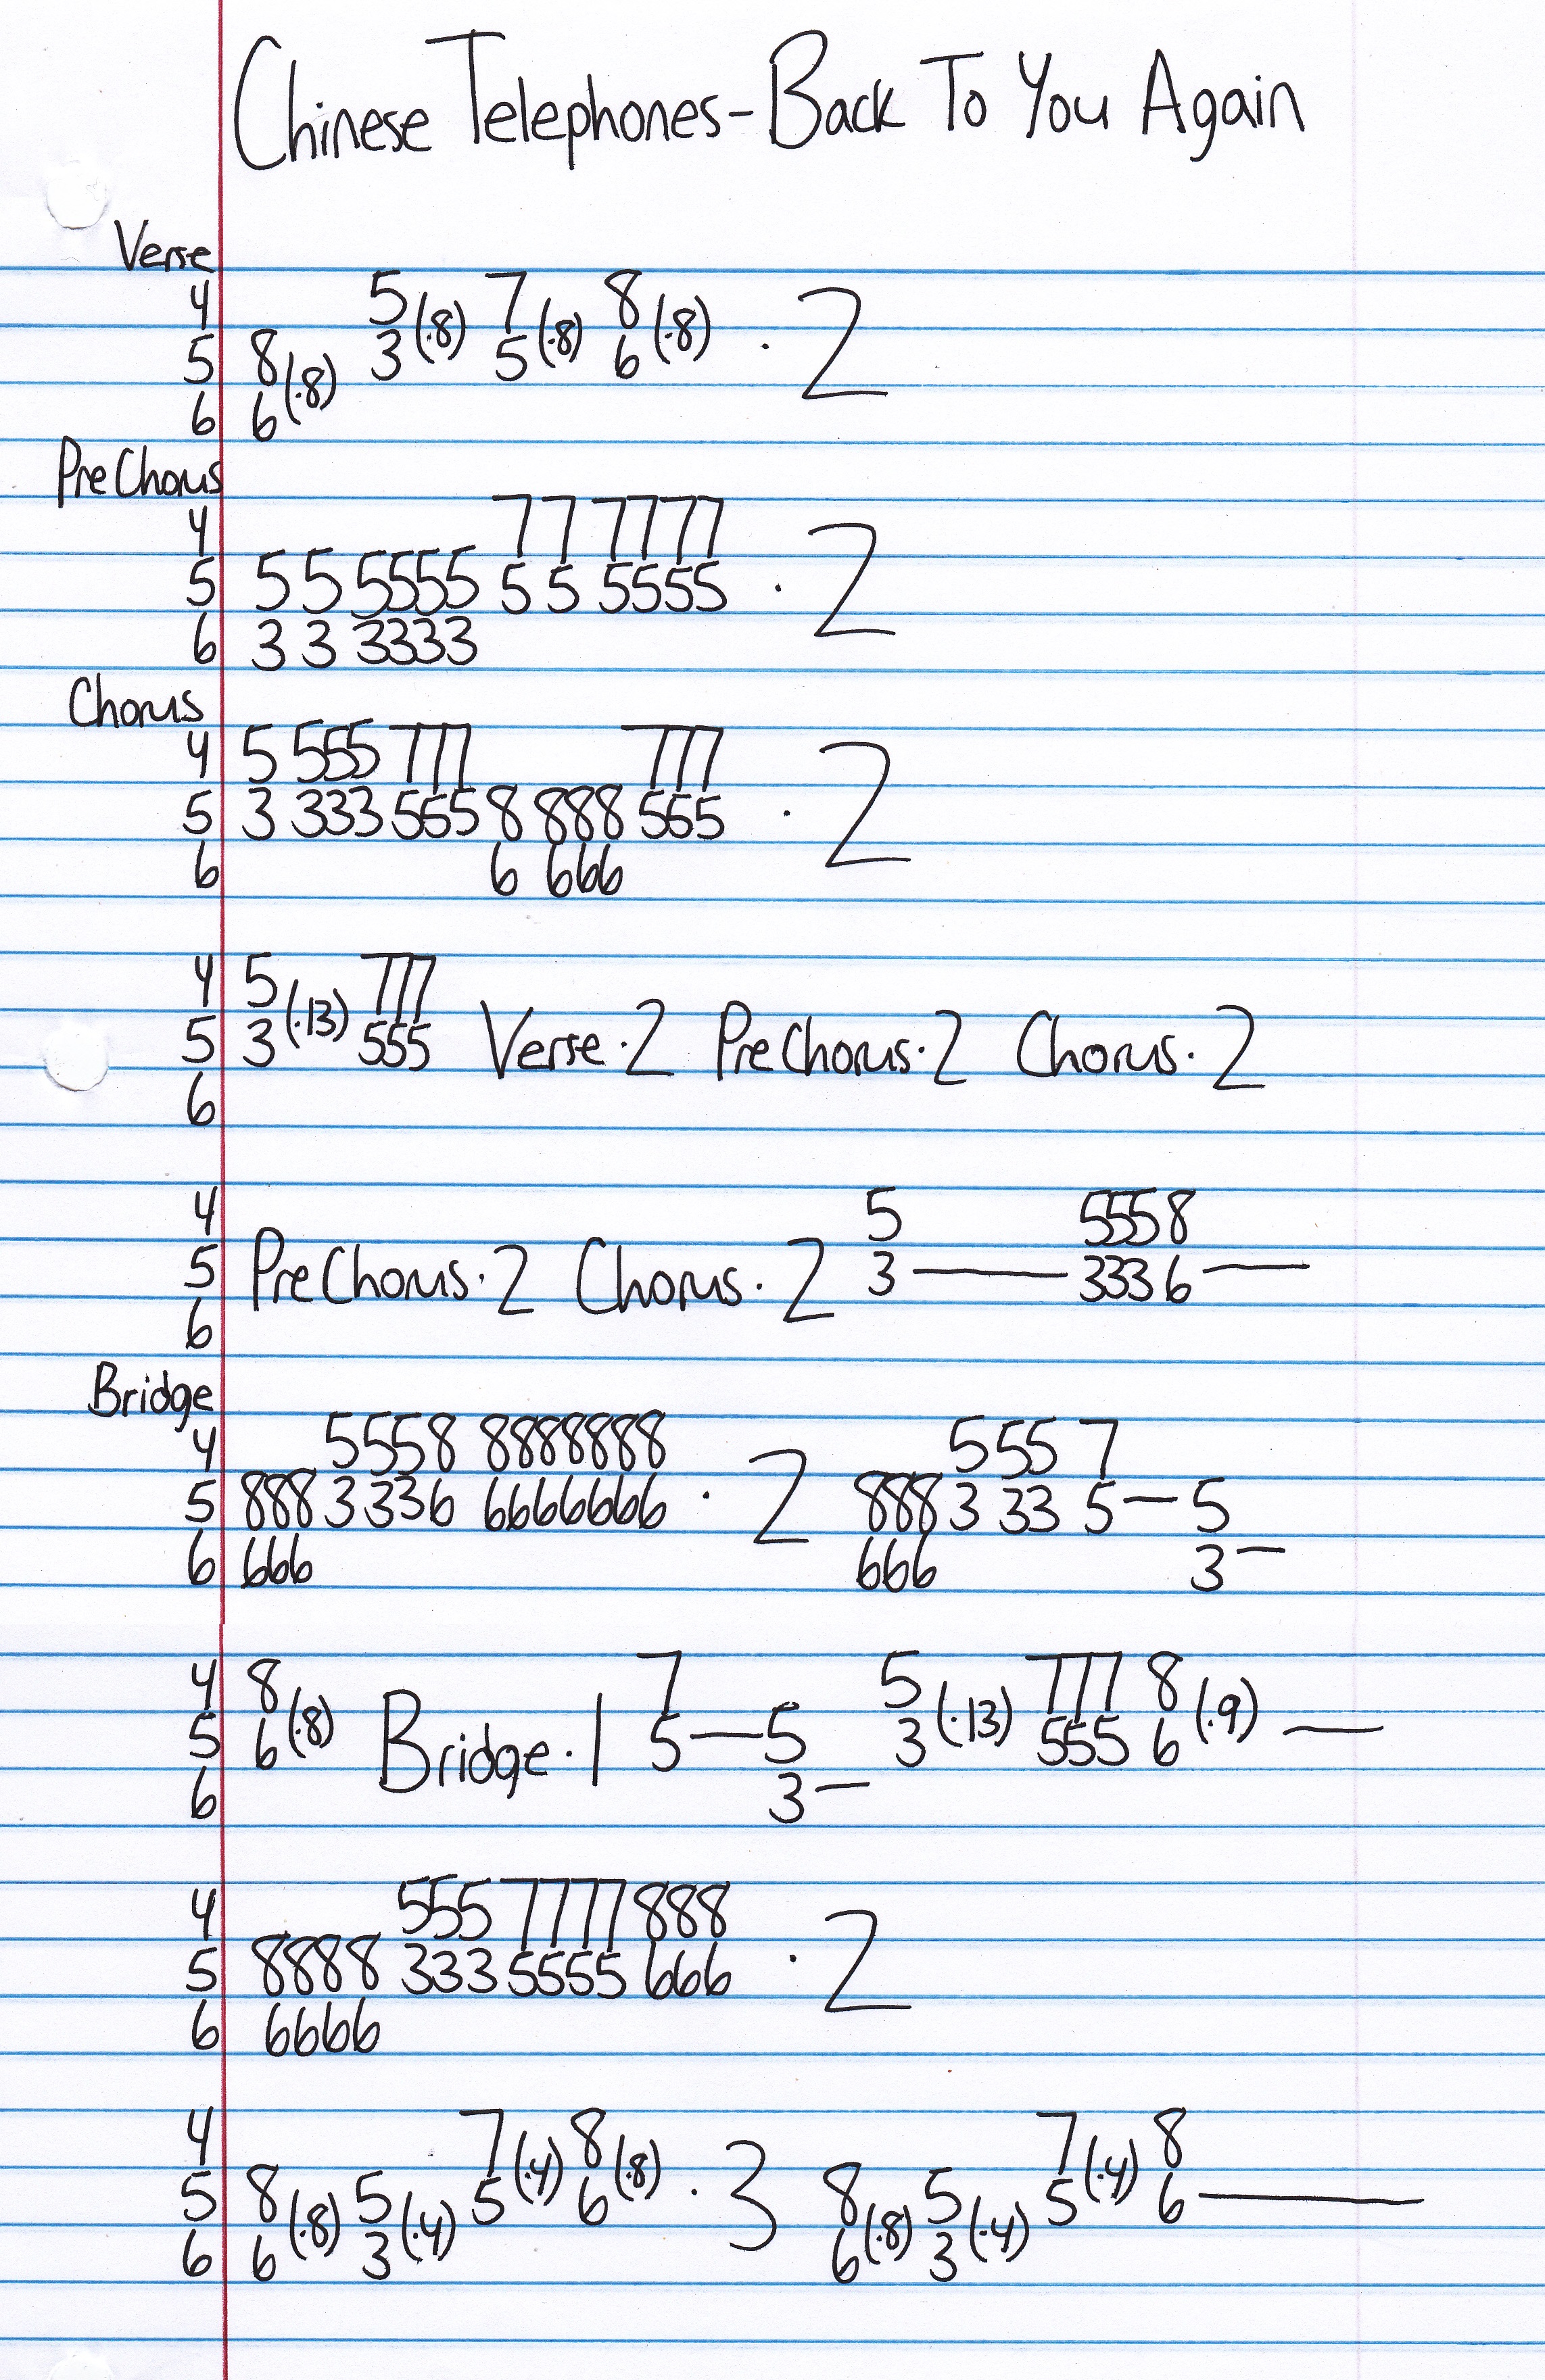 Chinese Telephones-Back To You Again
Verse
4 5 7 8
5 8 (·8) 3 (·8) 5 (·8) 6 (·8) · 2
6 6
PreChorus
4 7 7 7777
5 5 5 5555 5 5 5555 · 2
6 3 3 3333
Chorus
4 5 555 777 777
5 3 333 555 8 888 555 · 2
6 6 666
4 5 777
5 3 (·13) 555 Verse·2 PreChorus·2 Chorus·2
6
4 5 5558
5 PreChorus·2 Chorus·2 3 — 3336 —
6
Bridge
4 5558 8888888 5 55 7
5 888 3336 6666666 · 2 888 3 33 5 — 5
6 666 666 3 —
4 8 7 5 777 8
5 6 (·8) Bridge·1 5 — 5 3 (·13) 555 6 (·9) —
6 3 —
4 555 7777 888
5 8888 333 5555 666 · 2
6 6666
4 7 (·4) 8 7 (·4) 8
5 8 (·8) 5 5 6 (·8) · 3 8 5 5 6 —
6 6 3 (·4) 6 (·8) 3 (·4)